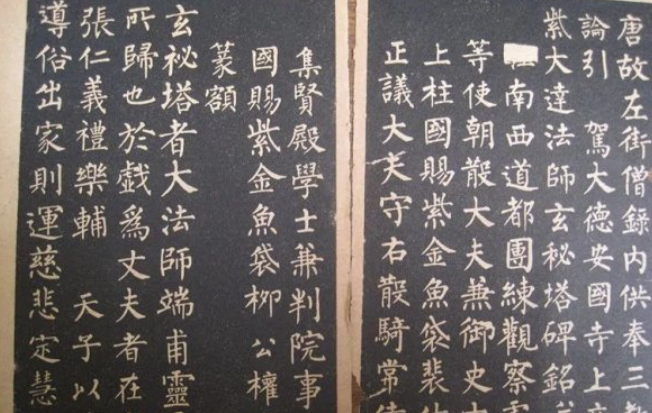 唐故左街僧錄內供奉三教
論引　駕大德安國寺上
紫大達法師玄秘塔碑銘
南西道都團練觀察
等使朝散大夫兼御史
上柱國賜紫金魚袋裴
正議大夫守右散騎常
集賢殿學士兼判院事
國賜紫金魚袋柳公權
篆額
玄秘塔者大法師端甫靈
所歸也於戲為丈夫者在
張仁義禮樂輔　天子以
導俗出家則運慈悲定慧